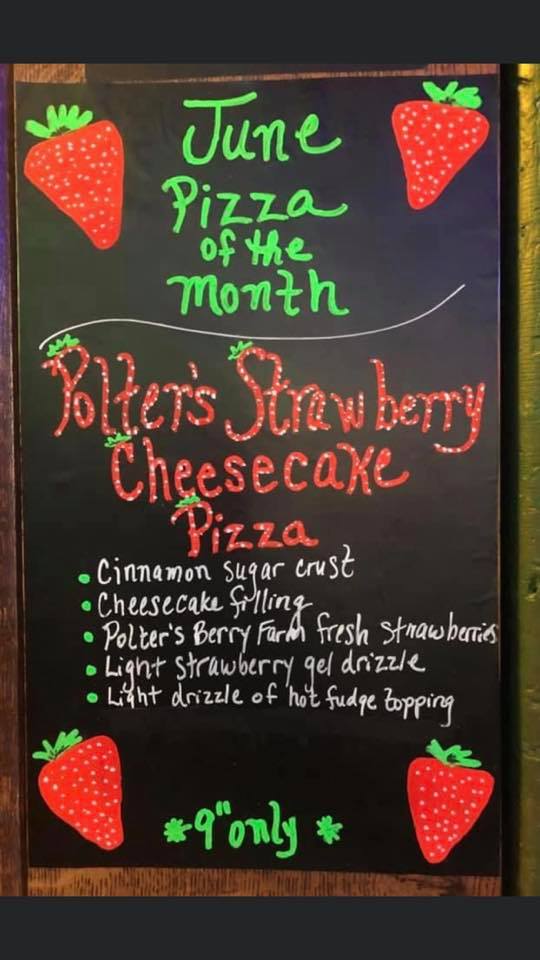 June
Pizza
of the
month
Polter's Strawberry
Cheesecake
Pizza
• Cinnamon sugar crust
• Cheesecake filling
• Polter's Berry Farm fresh strawberries
• Light strawberry gel drizzle
• Light drizzle of hot fudge topping
*9" only *